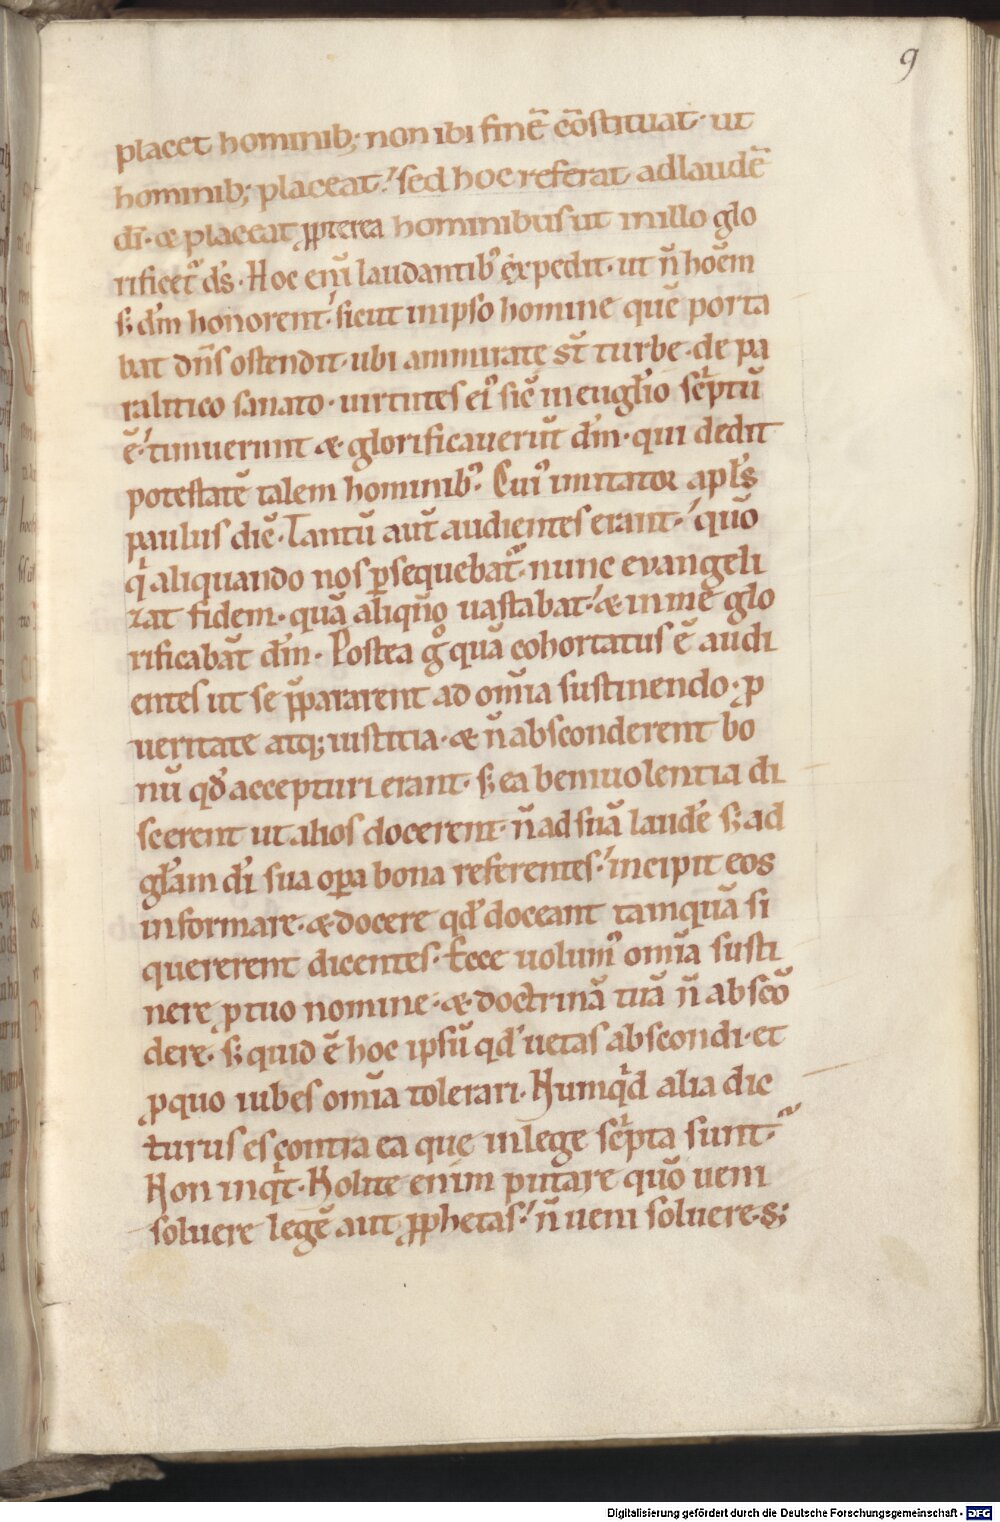 9
placet hominib; non ibi finē cōstituat· ut
hominib; placeat·! sed hoc referat· ad laudē
dī· & placeat ꝓpterea hominibus ut in illo glo
rificet᷑ ds̄· Hoc eni laudantibꝰ expedit· ut ñ hoēm
s; dm̄ honorent·! sicut in ipso homine quē porta
bat dn̄s ostendit· ubi ammiratę st̄ turbe· de pa
ralitico sanato· uirtutes eiꝰ sic̄ in euglio scptū
ē·! timuerunt & glorificauerūt dm̄· qui dedit
potestatē talem hominibꝰ· Cuiꝰ imitator apl̄s
paulus dic̄· Tantū aut̄ audientes erant·! quō
q aliquando nos ꝑsequebat᷑· nunc evangeli
zat fidem· quā aliqño uastabat·! & in me glo
rificabāt dm̄· Postea g quā cohortatus ē audi
entes ut se p̄pararent ad om̄ia sustinendo· ꝓ
ueritate atq; iustitia· & ñ absconderent bo
nū qd̄ accepturi erant· s; ea beniuolentia di
scerent ut alios docerent· ñ ad suā laudē s; ad
gl̄am dī sua oꝑa bona referentes·! incipit eos
informare· & docere qd̄ doceant tamquā si
quererent dicentes· Ecce uolumꝰ om̄ia susti
nere ꝓ tuo nomine· & doctrinā tuā ñ abscō
dere· s; quid ē hoc ipsū qd̄ uetas abscondi· et
ꝓ quo iubes om̄ia tolerari· Numqd alia dic
turus es contra ea quę in lege scpta sunt·
Non inqt· Nolite enim putare quō ueni
soluere legē aut ꝓphetas·! ñ ueni soluere· s;
Digitalisierung gefördert durch die Deutsche Forschungsgemeinschaft - DFG